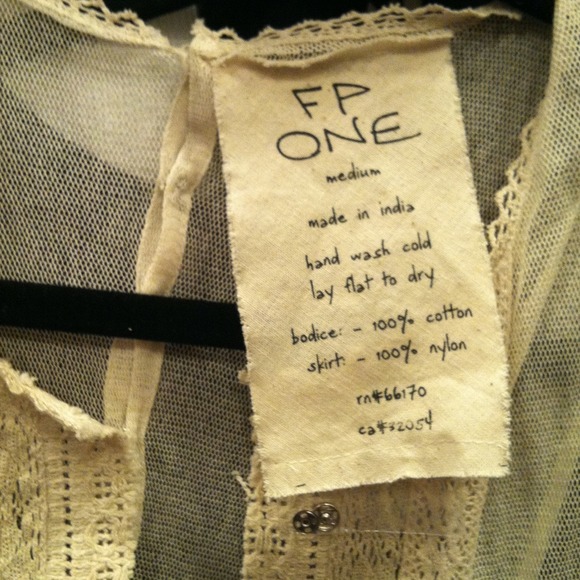 FP
ONE
medium
made in india
hand wash cold
lay flat to dry
bodice: - 100% cotton
skirt: - 100% nylon
rn#66170
ca#32054